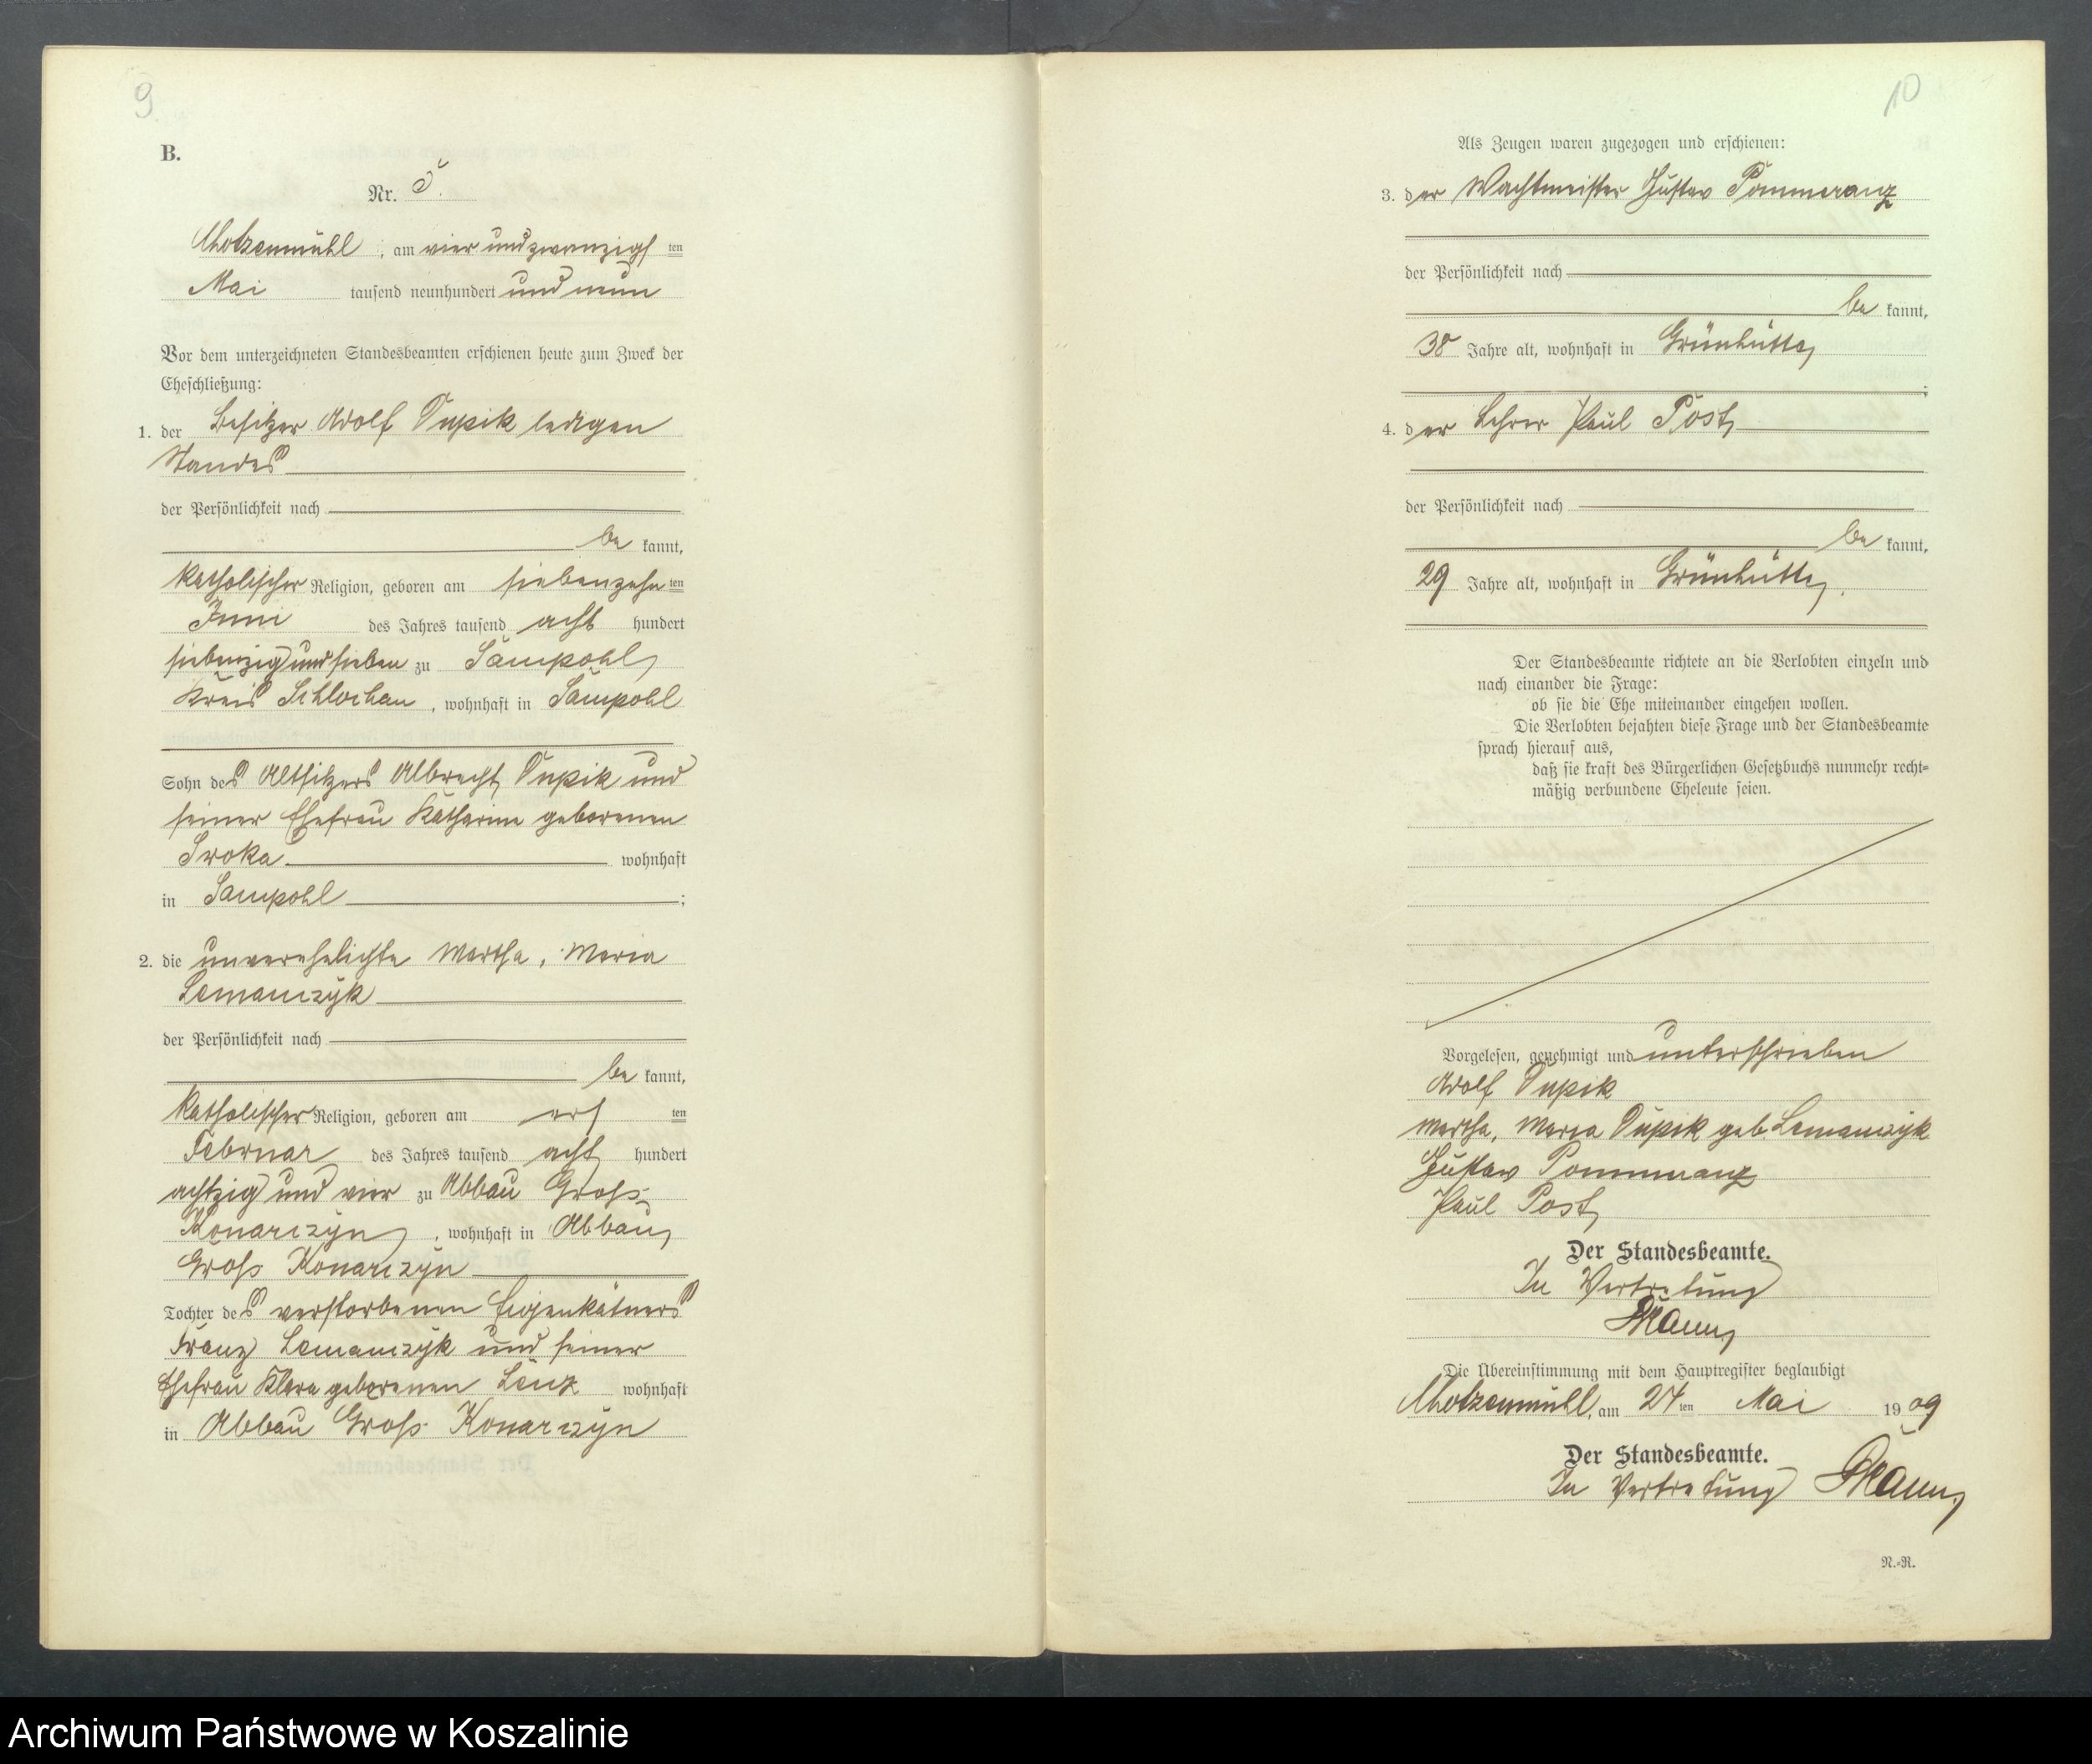 9
B.
Nr. 5.
Chotzenmühl, am vier und zwanzigsten
Mai tausend neunhundert und neun
Vor dem unterzeichneten Standesbeamten erschienen heute zum Zweck der
Eheschließung:
1. der Besitzer Adolf Dupik ledigen
Standes
der Persönlichkeit nach
be kannt,
katholischer Religion, geboren am siebenzehn ten
Juni des Jahres tausend acht hundert
siebenzig und sieben zu Sampohl,
Kreis Schlochau, wohnhaft in Sampohl
Sohn des Altsitzers Albrecht Dupik und
seiner Ehefrau Katharina geborenen
Sroka wohnhaft
in Sampohl ;
2. die unverehelichte Martha, Maria
Lemanczyk
der Persönlichkeit nach
be kannt,
katholischer Religion, geboren am ersten
Februar des Jahres tausend acht hundert
achtzig und vier zu Abbau Gross-
Konarczyn, wohnhaft in Abbau
Gross Konarczyn
Tochter des verstorbenen Eigenkätners
Franz Lemanczyk und seiner
Ehefrau Klara geborenen Lenz wohnhaft
in Abbau Gross Konarczyn
10
Als Zeugen waren zugezogen und erschienen:
3. der Wachtmeister Gustav Pommeranz
der Persönlichkeit nach
be kannt,
38 Jahre alt, wohnhaft in Grünhütte,
;
4. der Lehrer Paul Post,
der Persönlichkeit nach
be kannt,
29 Jahre alt, wohnhaft in Grünhütte.
Der Standesbeamte richtete an die Verlobten einzeln und
nach einander die Frage:
ob sie die Ehe miteinander eingehen wollen.
Die Verlobten bejahten diese Frage und der Standesbeamte
sprach hierauf aus,
daß sie kraft des Bürgerlichen Gesetzbuchs nunmehr recht-
mäßig verbundene Eheleute seien.
Vorgelesen, genehmigt und unterschrieben
Adolf Dupik
Martha, Maria Dupik geb. Lemanczyk
Gustav Pommeranz
Paul Post
Der Standesbeamte.
In Vertretung
Die Übereinstimmung mit dem Hauptregister beglaubigt
Chotzenmühl, am 24 ten Mai 1909
Der Standesbeamte.
In Vertretung
N.-R.
Archiwum Państwowe w Koszalinie